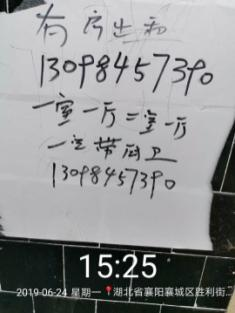 有房出租
13098457390
一室一厅二室一厅
一室带厨卫
13098457390
15:25
2019-06-24 星期一 湖北省襄阳襄城区胜利街...